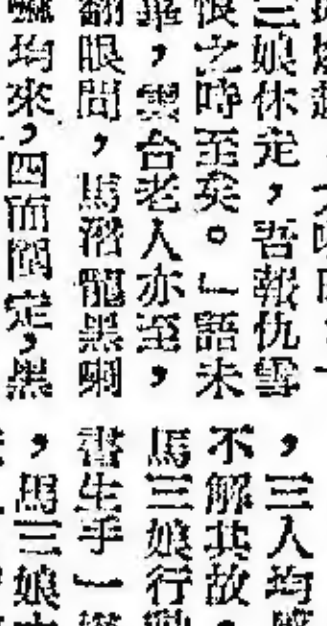 三娘休走，吾報仇雪
恨之時至矣。」語未
畢，雲台老人亦至，
翻眼間，馬潛龍黑喇
嘛均來，四面圍定，黑
，三人均
不解其故
馬三娘行
書生手」
，馬三娘